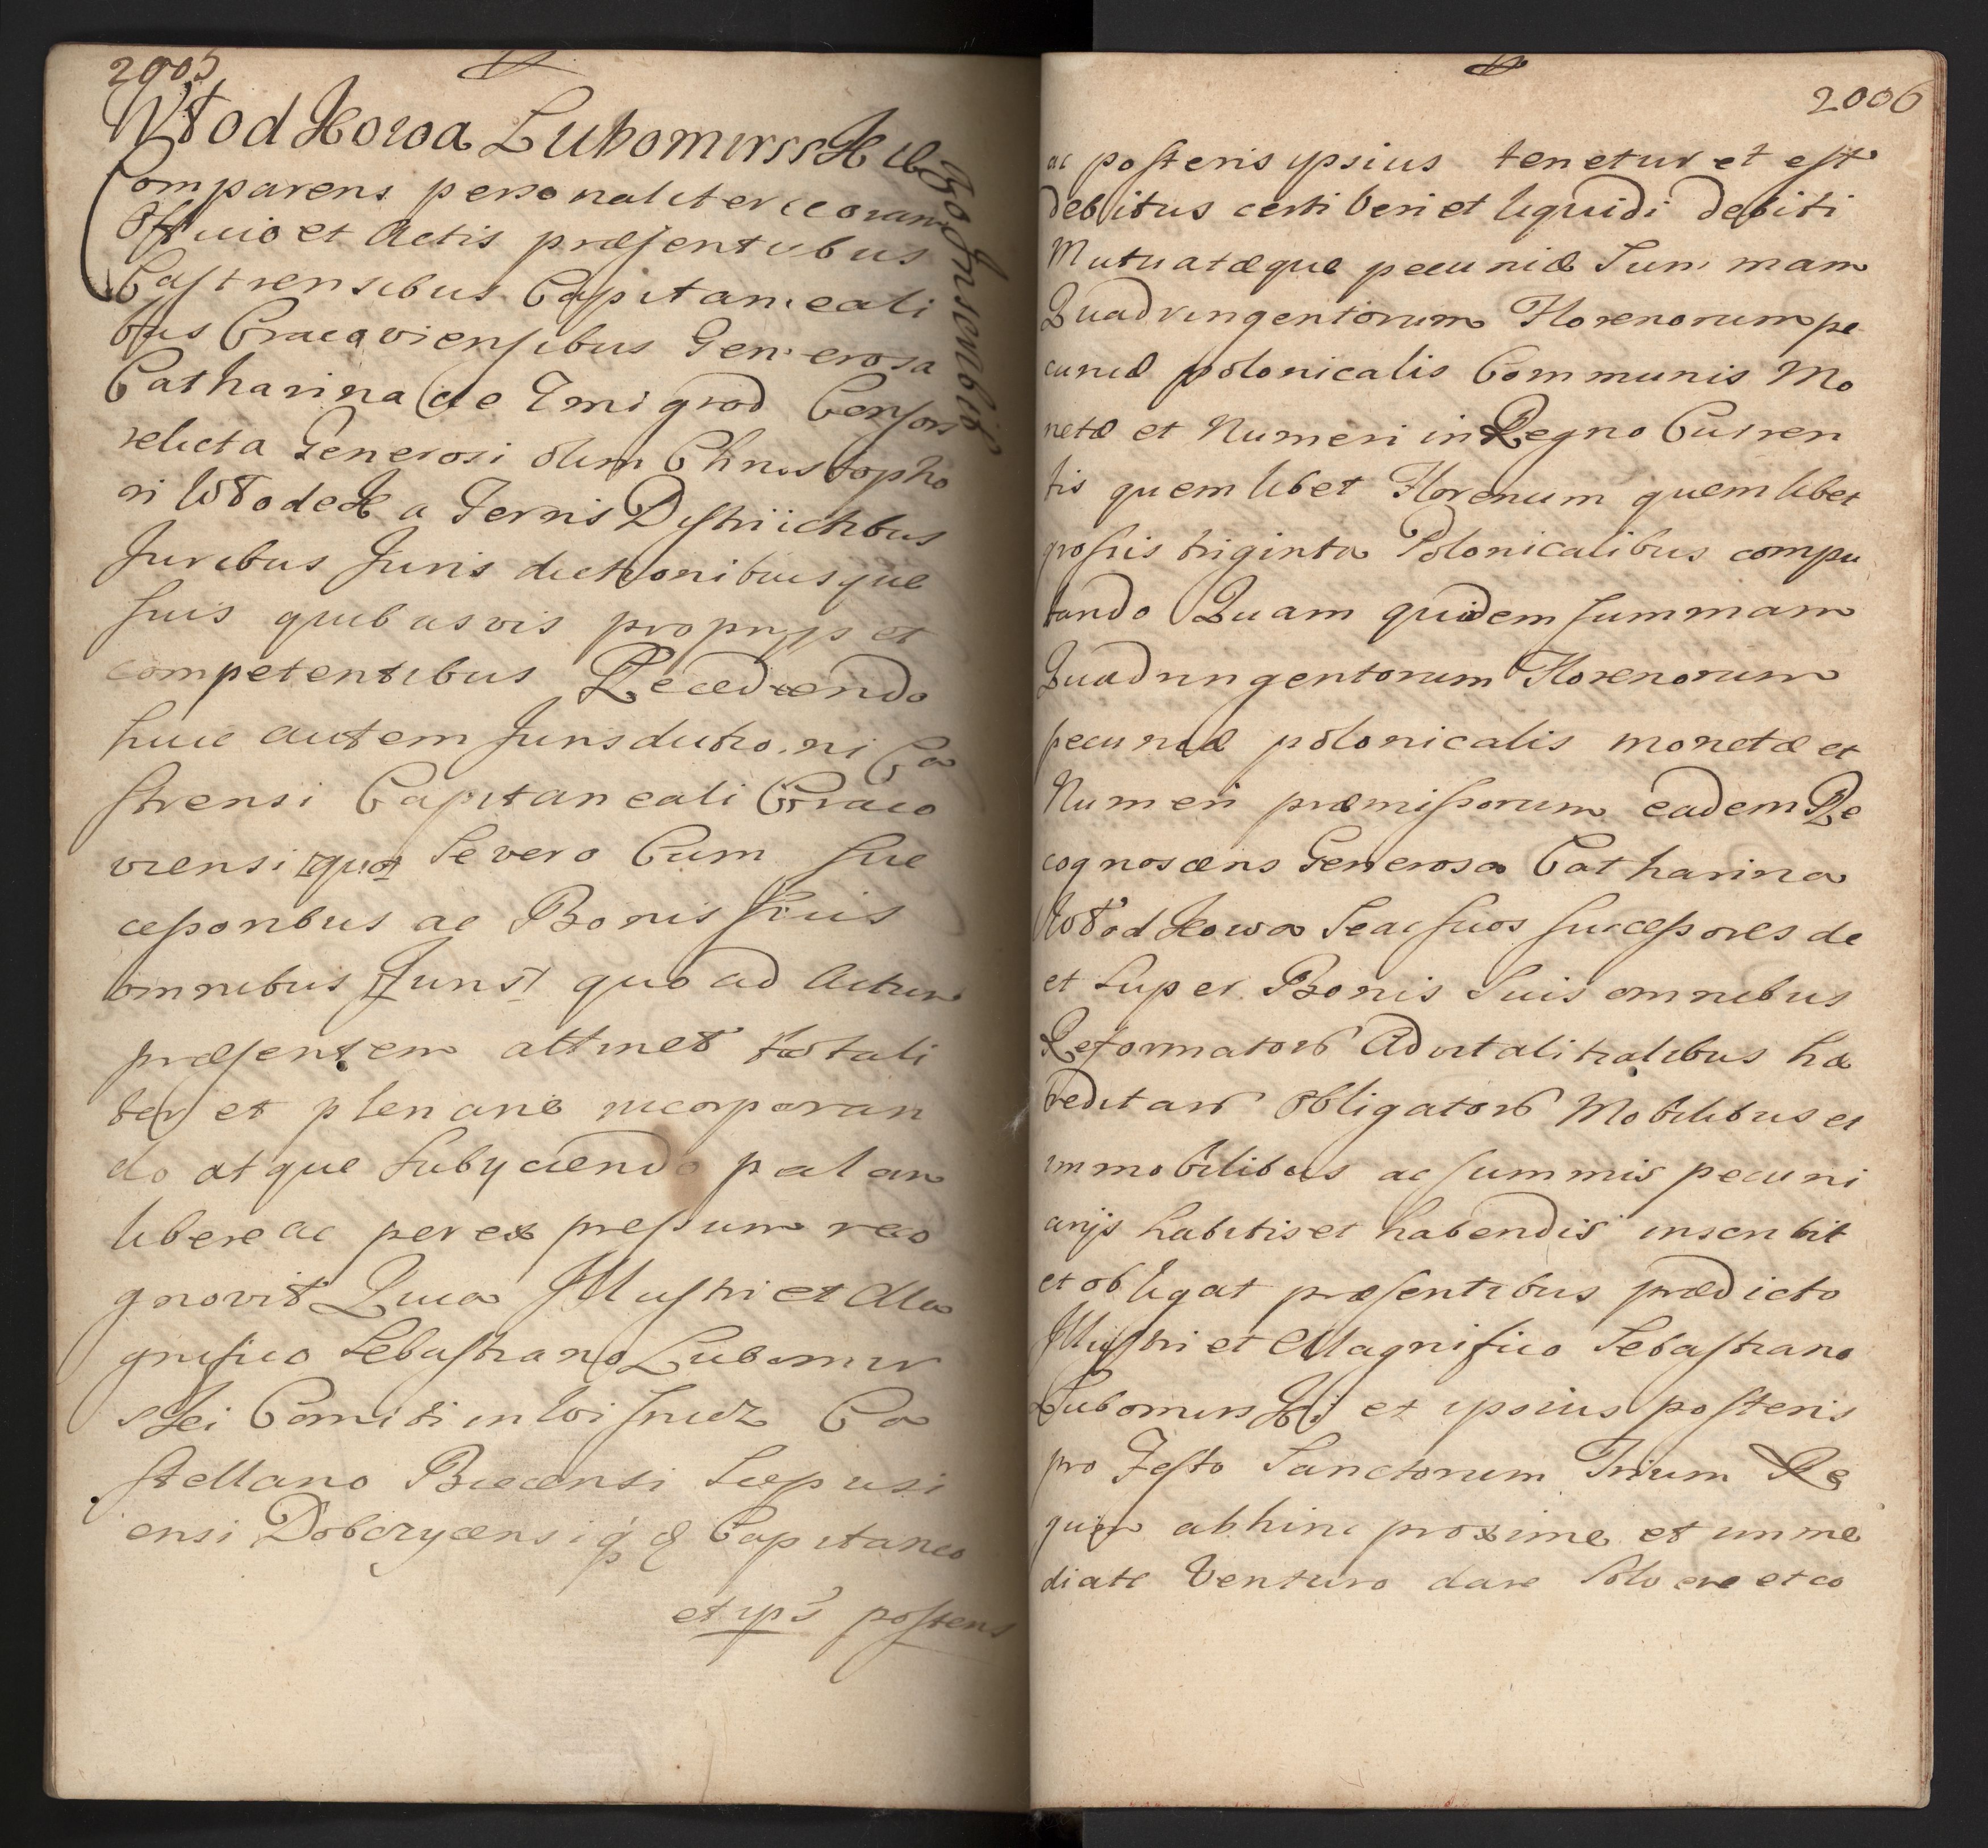 2005
Włodkowa Lubomirsski
se Inscribit
Comparens personaliter coram
Officio et Actis præsentibus
Castrensibus Capitaneali
bus Cracoviensibus Generosa
Catharina de Zmigrod Consors
relicta Generosi olim Christopho
ri Włodek a Terris Districtibus
Juribus Jurisdictionibusque
suis quibusvis proprijs et
competentibus Recedendo
huic autem Jurisdictioni Ca
strensi Capitaneali Craco
viensi quo Se vero Cum suc
cessoribus ac Bonis suis
omnibus Juris quo ad Actum
præsentem attinet totali
ter et plenarie incorporan
do atque subyciendo palam
libere ac per expressum reco
gnovit Quia Illustri et Ma
gnifico Sebastiano Lubomir
skei Comiti in Wisnicz Ca
stellano Biecensi Scepusi
ensi Dobczycensi q́ & Capitaneo
et ips posteris
2006
ac posteris ipsius tenetur et est
debitus certi Veri et liquidi debiti
Mutuatæque pecuniæ Summam
Quadringentorum Florenorum pe
cuniæ polonicalis Communis Mo
netæ et Numeri in Regno Curren
tis quemlibet Florenum quemlibet
grossis triginta Polonicalibus compu
tando Quam quidem summam
Quadringentorum Florenorum
pecuniæ polonicalis monetæ et
Numeri præmissorum eadem Re
cognoscens Generosa Catharina
Włodkowa Se ac suos successores de
et super Bonis Suis omnibus
Reformatorÿs Advitalitialibus hæ
reditarÿs obligatorÿs Mobilibus et
immobilibus ac summis pecuni
arijs habitis et habendis inscribit
et obligat præsentibus prædicto
Illustri et Magnifico Sebastiano
Lubomirski et ipsius posteris
pro Festo Sanctorum Trium Re
gum abhinc proxime et imme
diate Venturo dare Solvere et co